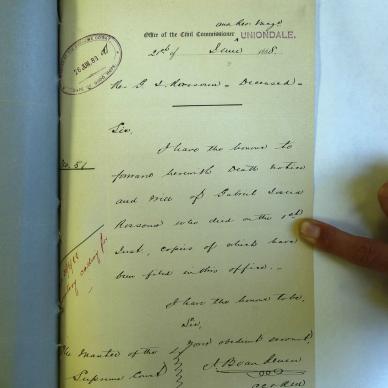 and Res. Magt
Office of the Civil Commissioner UNIONDALE,
21st of June 188
26 JUN. 89
Re: G. I. Rossouw - Deceased -
Sir,
I have the honour to
No. 51
forward herewith Death notice
and Will of Gabriel
Rossouw who died on the 1st
Inst., copies of which have
been filed in this office. -
I have the honour to be,
Sir,
Your obedient servant,
The Master of the
Supreme Court